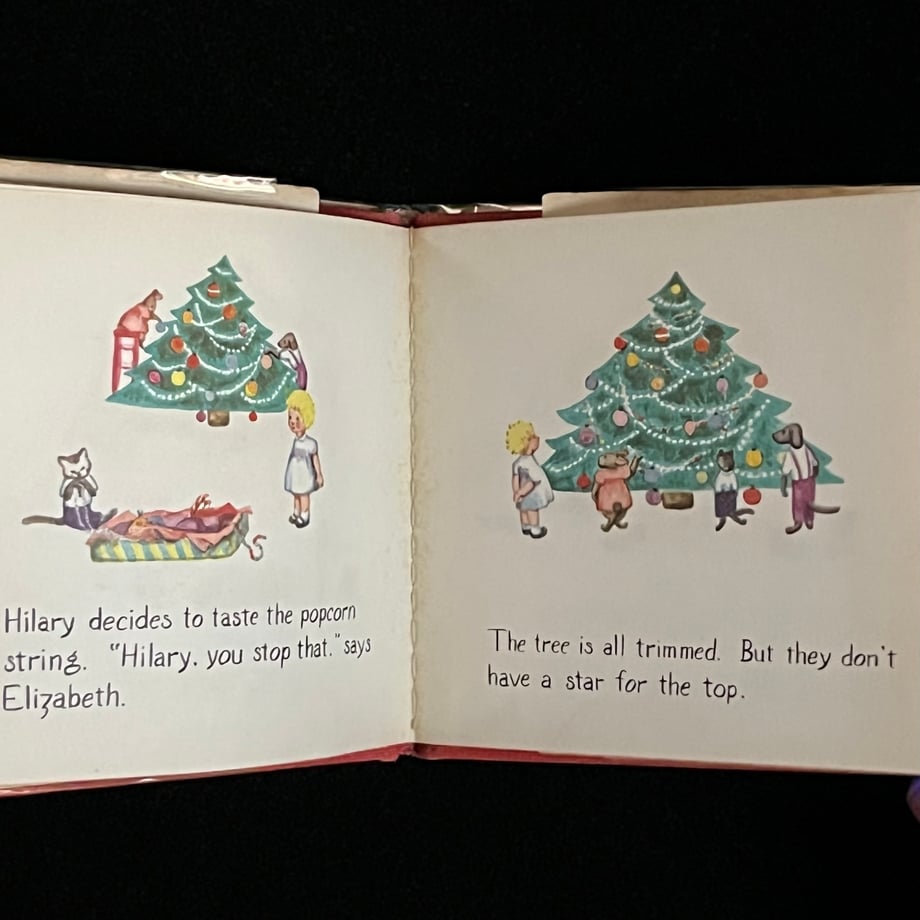 Hilary decides to taste the popcorn
string. "Hilary. you stop that." says
Elizabeth.
The tree is all trimmed. But they don't
have a star for the top.